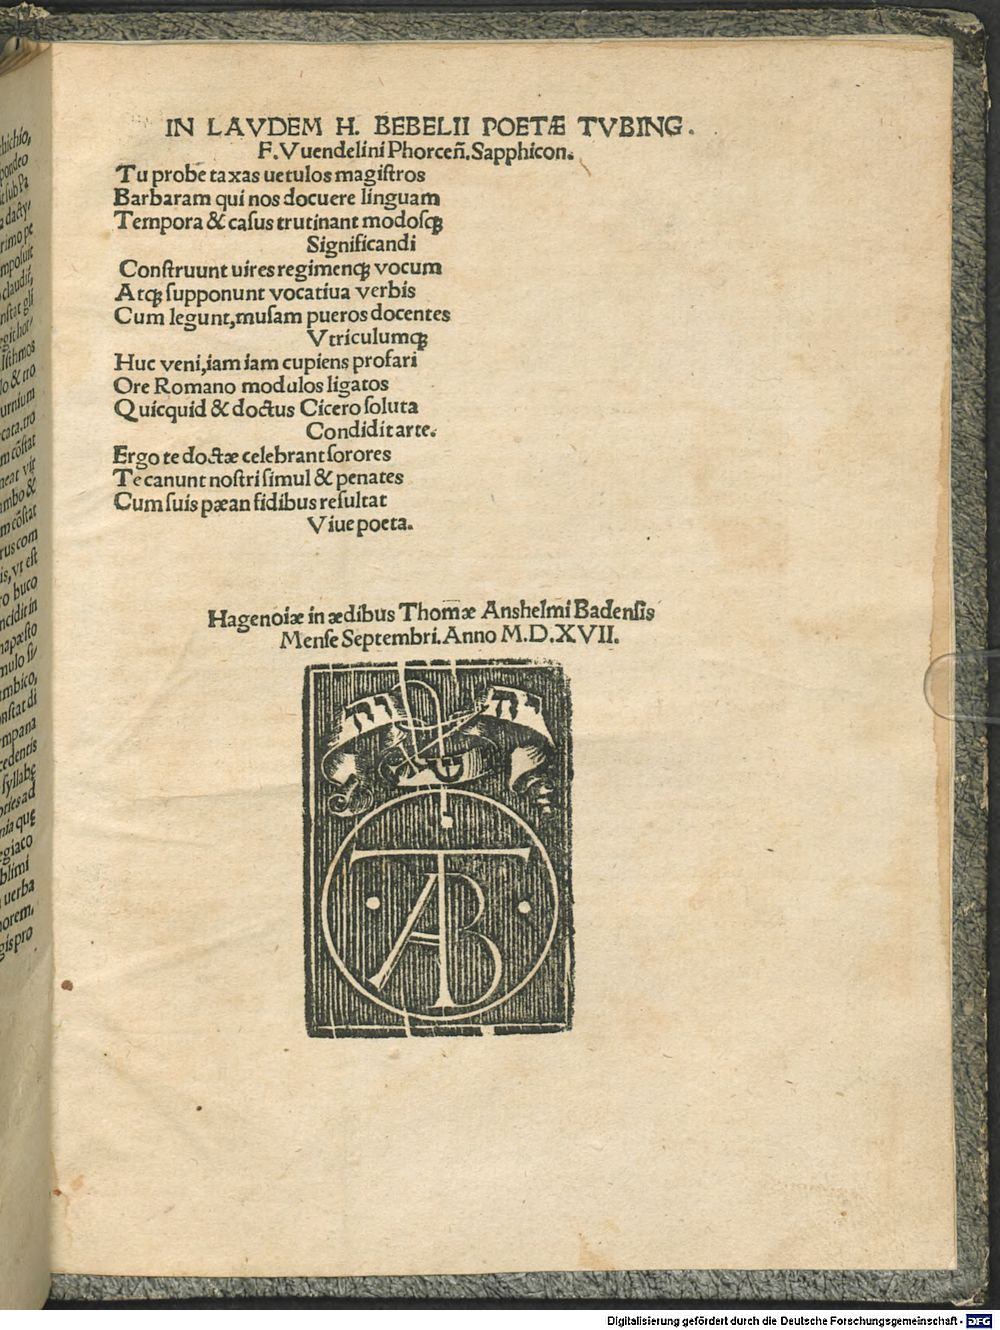 IN LAVDEM H. BEBELII POETÆ TVBING.
F. Vuendelini Phorceñ. Sapphicon.
Tu probe taxas uetulos magiſtros
Barbaram qui nos docuere linguam
Tempora & caſus trutinant modoſqꝫ
Significandi
Conſtruunt uires regimenqꝫ vocum
Atqꝫ ſupponunt vocatiua verbis
Cum legunt, muſam pueros docentes
Vtriculumqꝫ
Huc veni, iam iam cupiens profari
Ore Romano modulos ligatos
Quicquid & doctus Cicero ſoluta
Condidit arte.
Ergo te doctæ celebrant ſorores
Te canunt noſtri ſimul & penates
Cum ſuis pæan fidibus reſultat
Viue poeta.
Hagenoiæ in ædibus Thomæ Anshelmi Badenſis
Menſe Septembri. Anno M.D.XVII.
יה וה
TAB
Digitalisierung gefördert durch die Deutsche Forschungsgemeinschaft - DFG